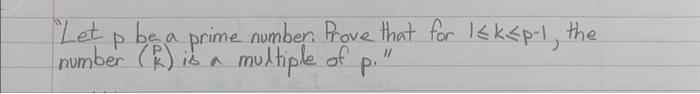 "Let p be a prime number. Prove that for 1≤k≤p-1, the
number (p k) is a multiple of p."